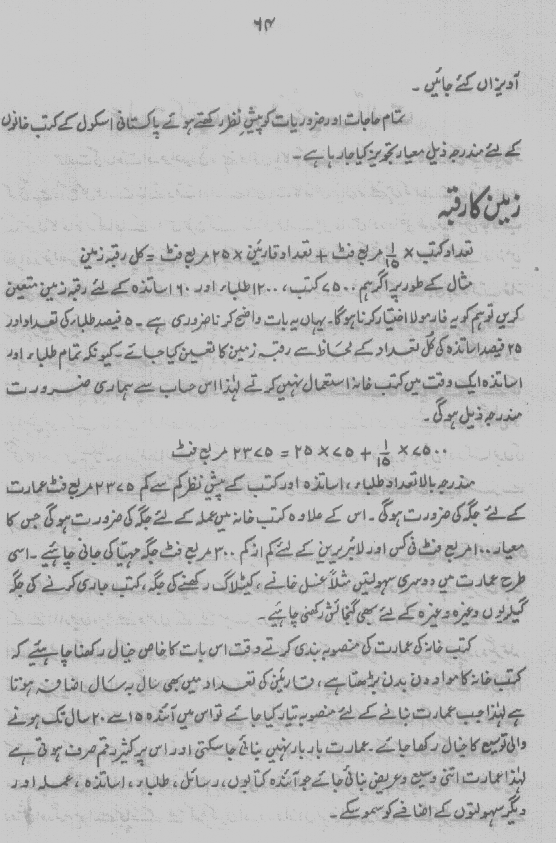 ۶۴
آویزاں کئے جائیں۔
تمام حاجات اور ضروریات کو پیشِ نظر رکھتے ہوئے پاکستانی اسکول کے کتب خانوں
کے لئے مندرجہ ذیل معیار تجویز کیا جا رہا ہے۔
زمین کا رقبہ
تعداد کتب × ۱/۱۵ مربع فٹ + تعداد قارئین × ۲۵ مربع فٹ = کل رقبہ زمین
مثال کے طور پر اگر ہم ۷۵۰۰ کتب، ۱۲۰۰ طلباء اور ۶۰ اساتذہ کے لئے رقبہ زمین متعین
کریں تو ہم کو یہ فارمولا اختیار کرنا ہوگا۔ یہاں یہ بات واضح کرنا ضروری ہے۔ ۵ فیصد طلباء کی تعداد اور
۲۵ فیصد اساتذہ کی کل تعداد کے لحاظ سے رقبہ زمین کا تعین کیا جائے۔ کیونکہ تمام طلباء اور
اساتذہ ایک وقت میں کتب خانہ استعمال نہیں کرتے لہٰذا اس حساب سے ہماری ضرورت
مندرجہ ذیل ہوگی۔
۷۵۰۰ × ۱/۱۵ + ۷۵ × ۲۵ = ۲۳۷۵ مربع فٹ
مندرجہ بالا تعداد طلباء، اساتذہ اور کتب کے پیش نظر کم سے کم ۲۳۷۵ مربع فٹ عمارت
کے لئے جگہ کی ضرورت ہوگی۔ اس کے علاوہ کتب خانہ میں عملہ کے لئے جگہ کی ضرورت ہوگی جس کا
معیار ۱۰۰ مربع فٹ فی کس اور لائبریرین کے لئے کم از کم ۳۰۰ مربع فٹ جگہ مہیا کی جانی چاہئیے۔ اسی
طرح عمارت میں دوسری سہولتیں مثلاً غسل خانے، کیٹلاگ رکھنے کی جگہ، کتب جاری کرنے کی جگہ
گیلریوں وغیرہ وغیرہ کے لئے بھی گنجائش رکھنی چاہئیے۔
کتب خانہ کی عمارت کی منصوبہ بندی کرتے وقت اس بات کا خاص خیال رکھنا چاہئیے کہ
کتب خانہ کا مواد دن بدن بڑھتا ہے، قارئین کی تعداد میں بھی سال بہ سال اضافہ ہوتا
ہے لہٰذا جب عمارت بنانے کے لئے منصوبہ تیار کیا جائے تو اس میں آئندہ ۱۵ سے ۲۰ سال تک ہونے
والی توسیع کا خیال رکھا جائے۔ عمارت بار بار نہیں بنائی جا سکتی اور اس پر کثیر رقم صرف ہوتی ہے
لہٰذا عمارت اتنی وسیع و عریض بنائی جائے جو آئندہ کتابوں، رسائل، طلباء، اساتذہ، عملہ اور
دیگر سہولتوں کے اضافے کو سمو سکے۔